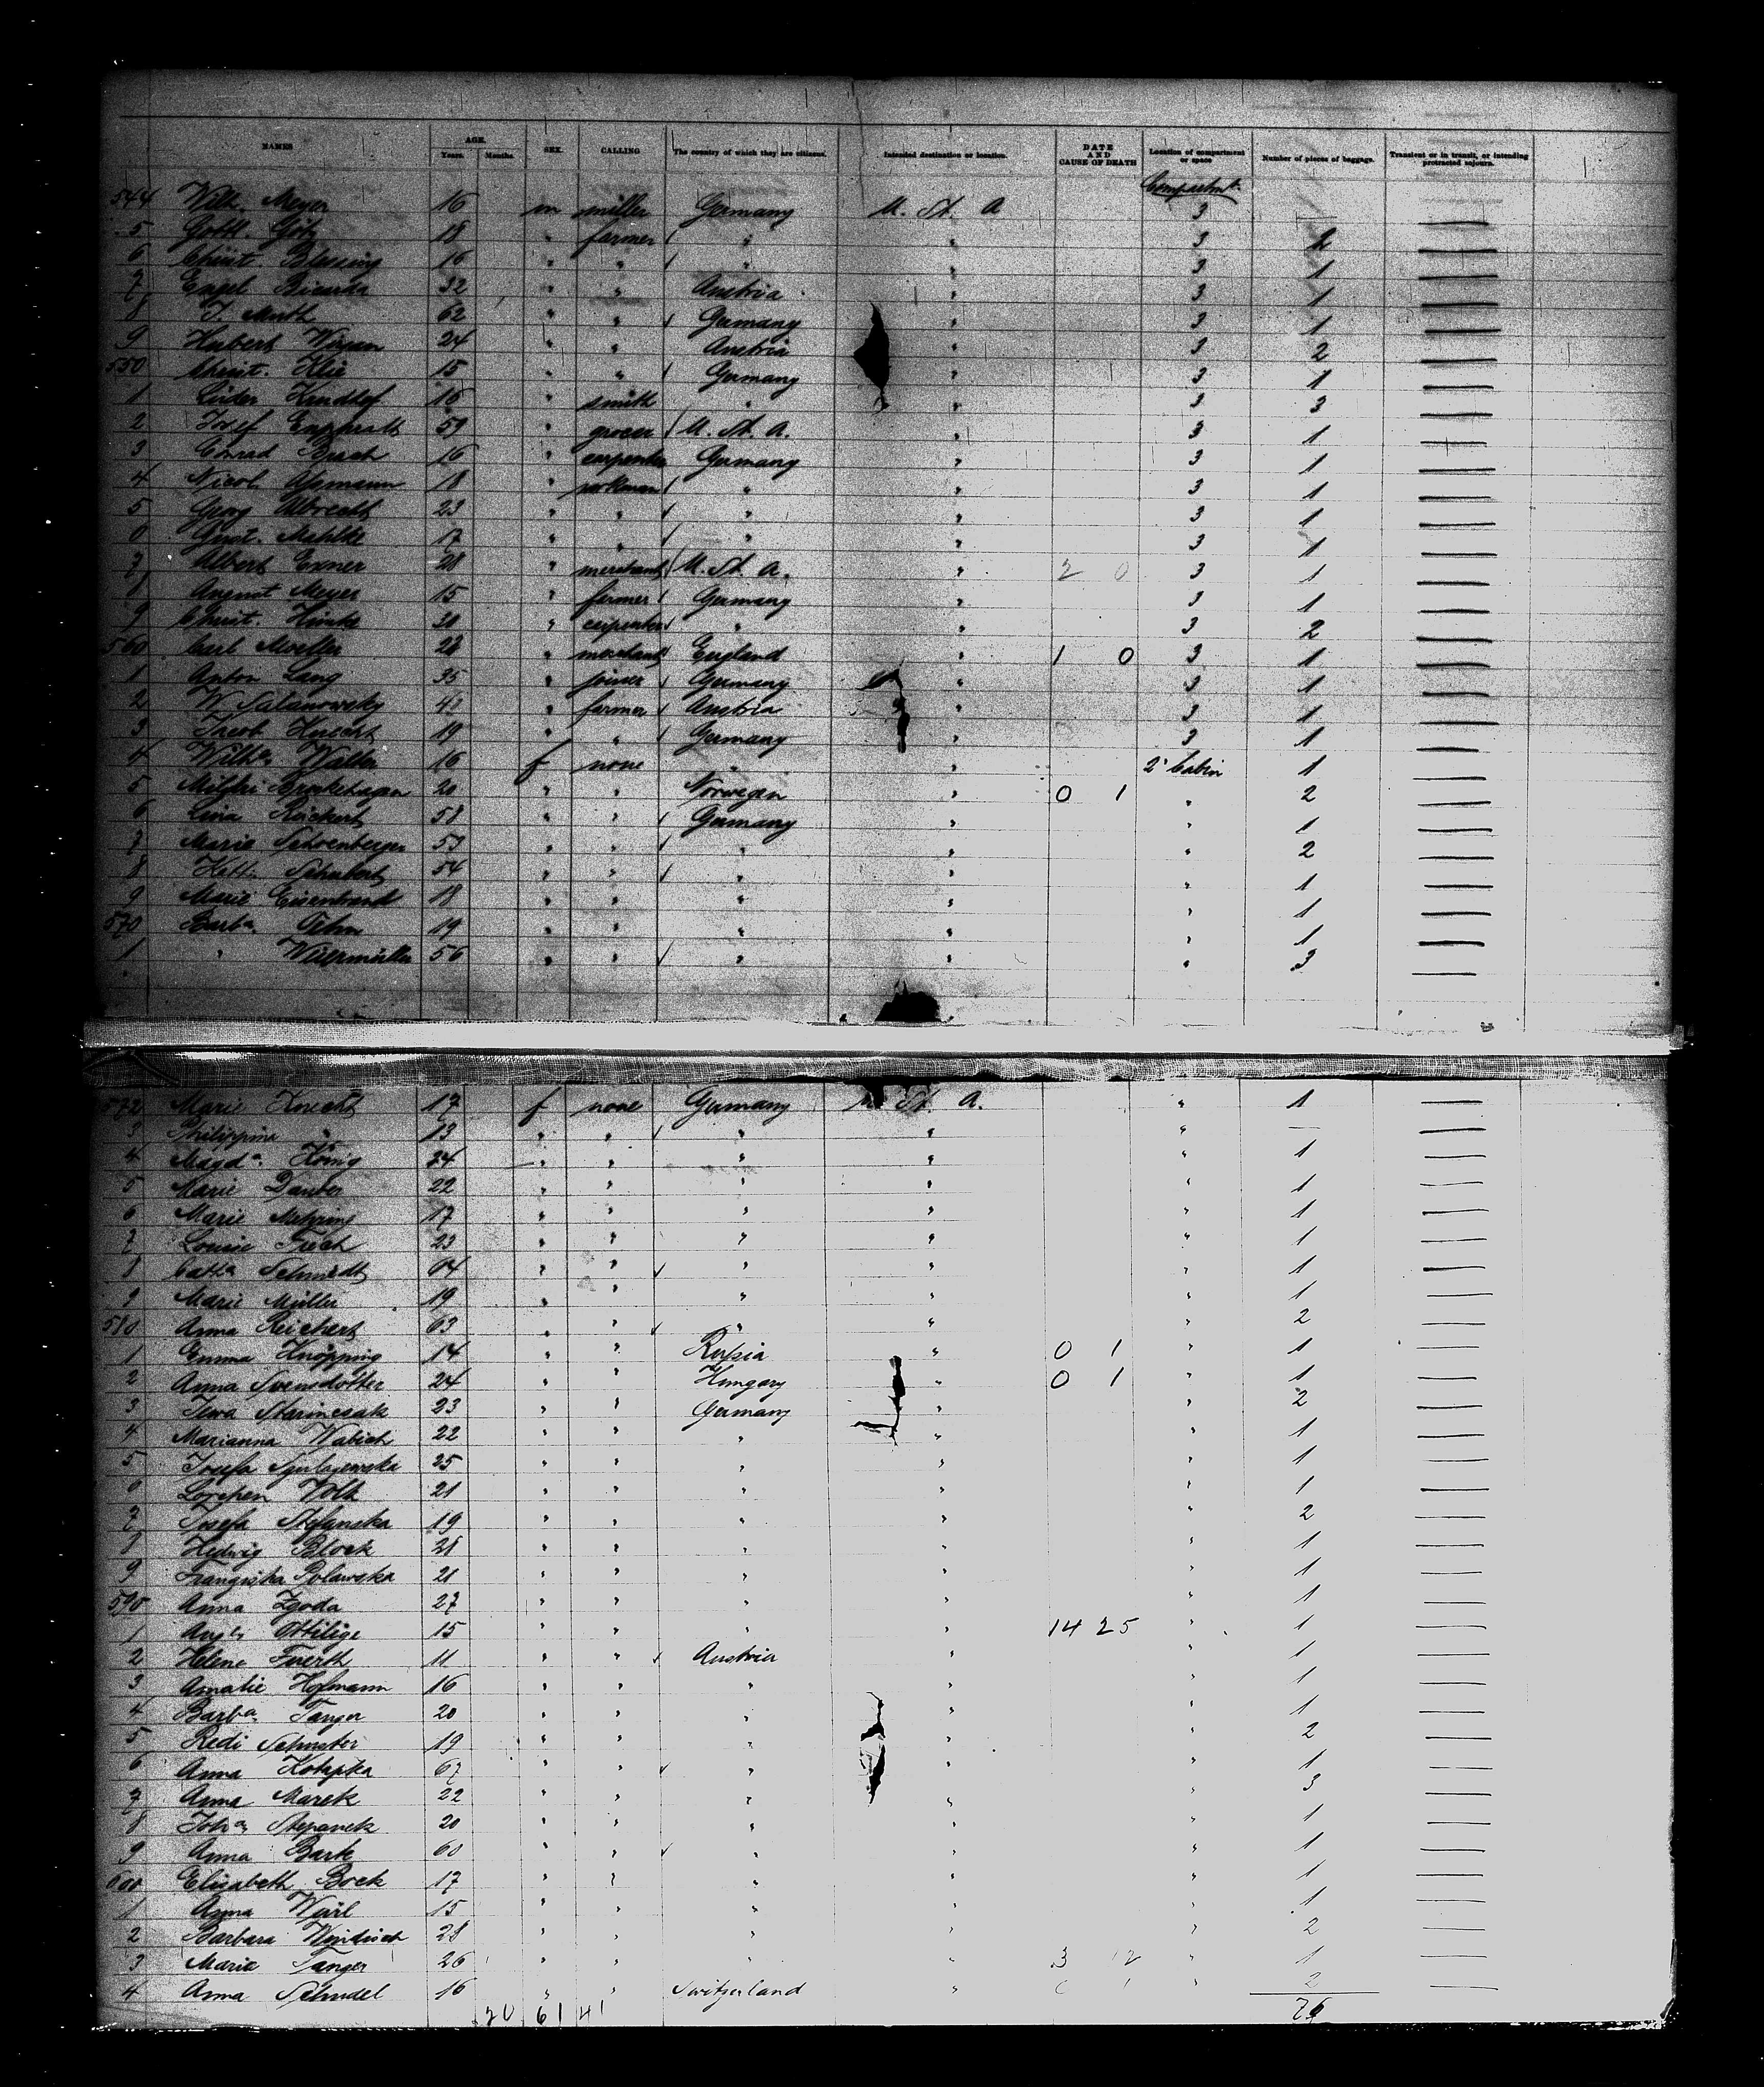 NAMES AGE. SEX. CALLING The country of which they are citizens. Intended destination or location. DATE AND CAUSE OF DEATH Location of compartment or space Number of pieces of baggage. Transient or in transit, or intending protracted sojourn.
Years. Months.
Compartmt.
544 Wilh. Meyer 16 m miller Germany U. St. A 3 —
5 Gottl. Götz 18 " farmer " " 3 2 —
6 Christ. Blessing 16 " " " " 3 1 —
7 Engel 32 " " Austria " 3 1 —
8 J. Muth 62 " " Germany " 3 1 —
9 Hubert 24 " " Austria " 3 2 —
550 Christ. Klie 15 " " Germany " 3 1 —
1 16 " smith " " 3 3 —
2 Josef 59 " grocer U. St. A. " 3 1 —
3 Conrad 16 " carpenter Germany " 3 1 —
4 Nicol. 18 " workman " " 3 1 —
5 Georg Albrecht 23 " " " " 3 1 —
6 Gust. Mahlke 17 " " " " 3 1 —
7 Albert Exner 28 " merchant U. St. A. " 2 0 3 1 —
8 August Meyer 15 " farmer Germany " 3 1 —
9 Christ. 20 " carpenter " " 3 2 —
560 Carl Moeller 28 " merchant England " 1 0 3 1 —
1 Anton Lang 35 " joiner Germany " 3 1 —
2 W 43 " farmer Austria " 3 1 —
3 Jacob 19 " " Germany " 3 1 —
4 Wilha. Walter 16 f none " " 2' Cabin 1 —
5 20 " " Norwegen " 0 1 " 2 —
6 Lina Rückert 58 " " Germany " " 1 —
7 Marie Schoenberger 53 " " " " " 2 —
8 Kath. Schubert 54 " " " " " 1 —
9 Marie Eisenbrandt 18 " " " " " 1 —
570 Barba. 19 " " " " " 1 —
1 " 56 " " " " " 3 —
572 Marie Knecht 17 f none Germany U. St. A. " 1 —
3 Philippina " 13 " " " " " — —
4 Magda. König 24 " " " " " 1 —
5 Marie Dauber 22 " " " " " 1 —
6 Marie Mehring 17 " " " " " 1 —
7 Louise 23 " " " " " 1 —
8 Catha. Schmidt 64 " " " " " 1 —
9 Marie Müller 19 " " " " " 1 —
580 Anna Reichert 63 " " " " " 2 —
1 Emma Knöpping 14 " " Russia " 0 1 " 1 —
2 Anna Svensdotter 24 " " Hungary " 0 1 " 1 —
3 23 " " Germany " " 2 —
4 Marianna Wabich 22 " " " " " 1 —
5 Josefa 25 " " " " " 1 —
6 Volk 21 " " " " " 1 —
7 Josefa Stefanska 19 " " " " " 2 —
8 Hedwig Block 28 " " " " " 1 —
9 Franziska Polawska 21 " " " " " 1 —
590 Anna Zgoda 27 " " " " " 1 —
1 Ottilige 15 " " " " 14 25 " 1 —
2 Helene Fuerth 11 " " Austria " " 1 —
3 Amalie Hofmann 16 " " " " " 1 —
4 Barba. Tanger 20 " " " " " 1 —
5 Redi Schuster 19 " " " " " 2 —
6 Anna 67 " " " " " 1 —
7 Anna Marek 22 " " " " " 3 —
8 Joha. Stepanek 20 " " " " " 1 —
9 Anna Bartl 60 " " " " " 1 —
600 Elisabeth Bock 17 " " " " " 1 —
1 Anna 15 " " " " " 1 —
2 Barbara Windisch 28 " " " " " 2 —
3 Marie Tanger 26 " " " " 3 12 " 1 —
4 Anna Schudel 16 " " Switzerland " 0 1 " 2 —
20 61 41 76